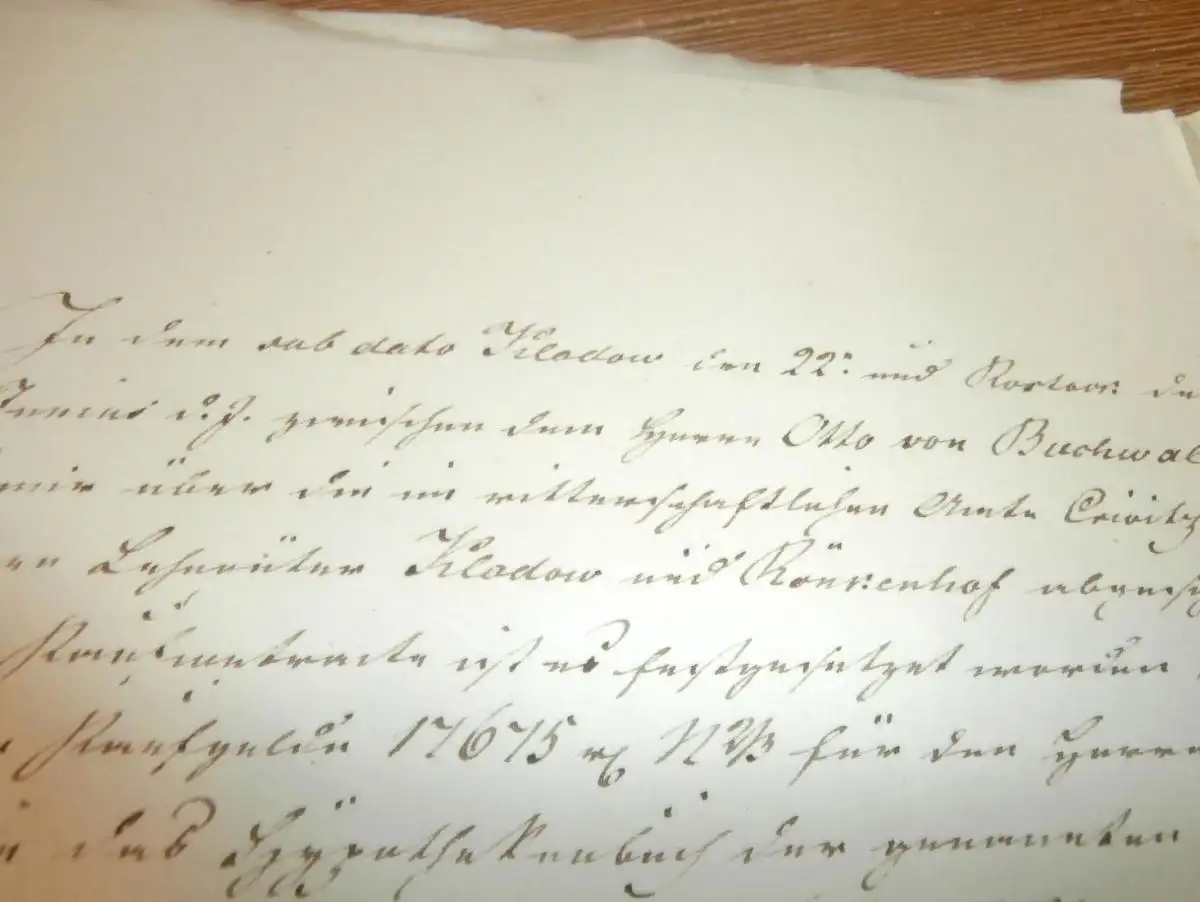 In dem sub dato Kladow den 22n und Rostock de
Junius d. J. zwischen dem Herrn Otto von Buchwal
mir über die im ritterschaftlichen Amte Crivitz
en Lehngüter Kladow und Rönkenhof abgesch
Kaufcontracte ist es festgesetzet worden
Kaufgelde 17675 rx N 2/3 für den Herrn
das Hypothekenbuch der genannten